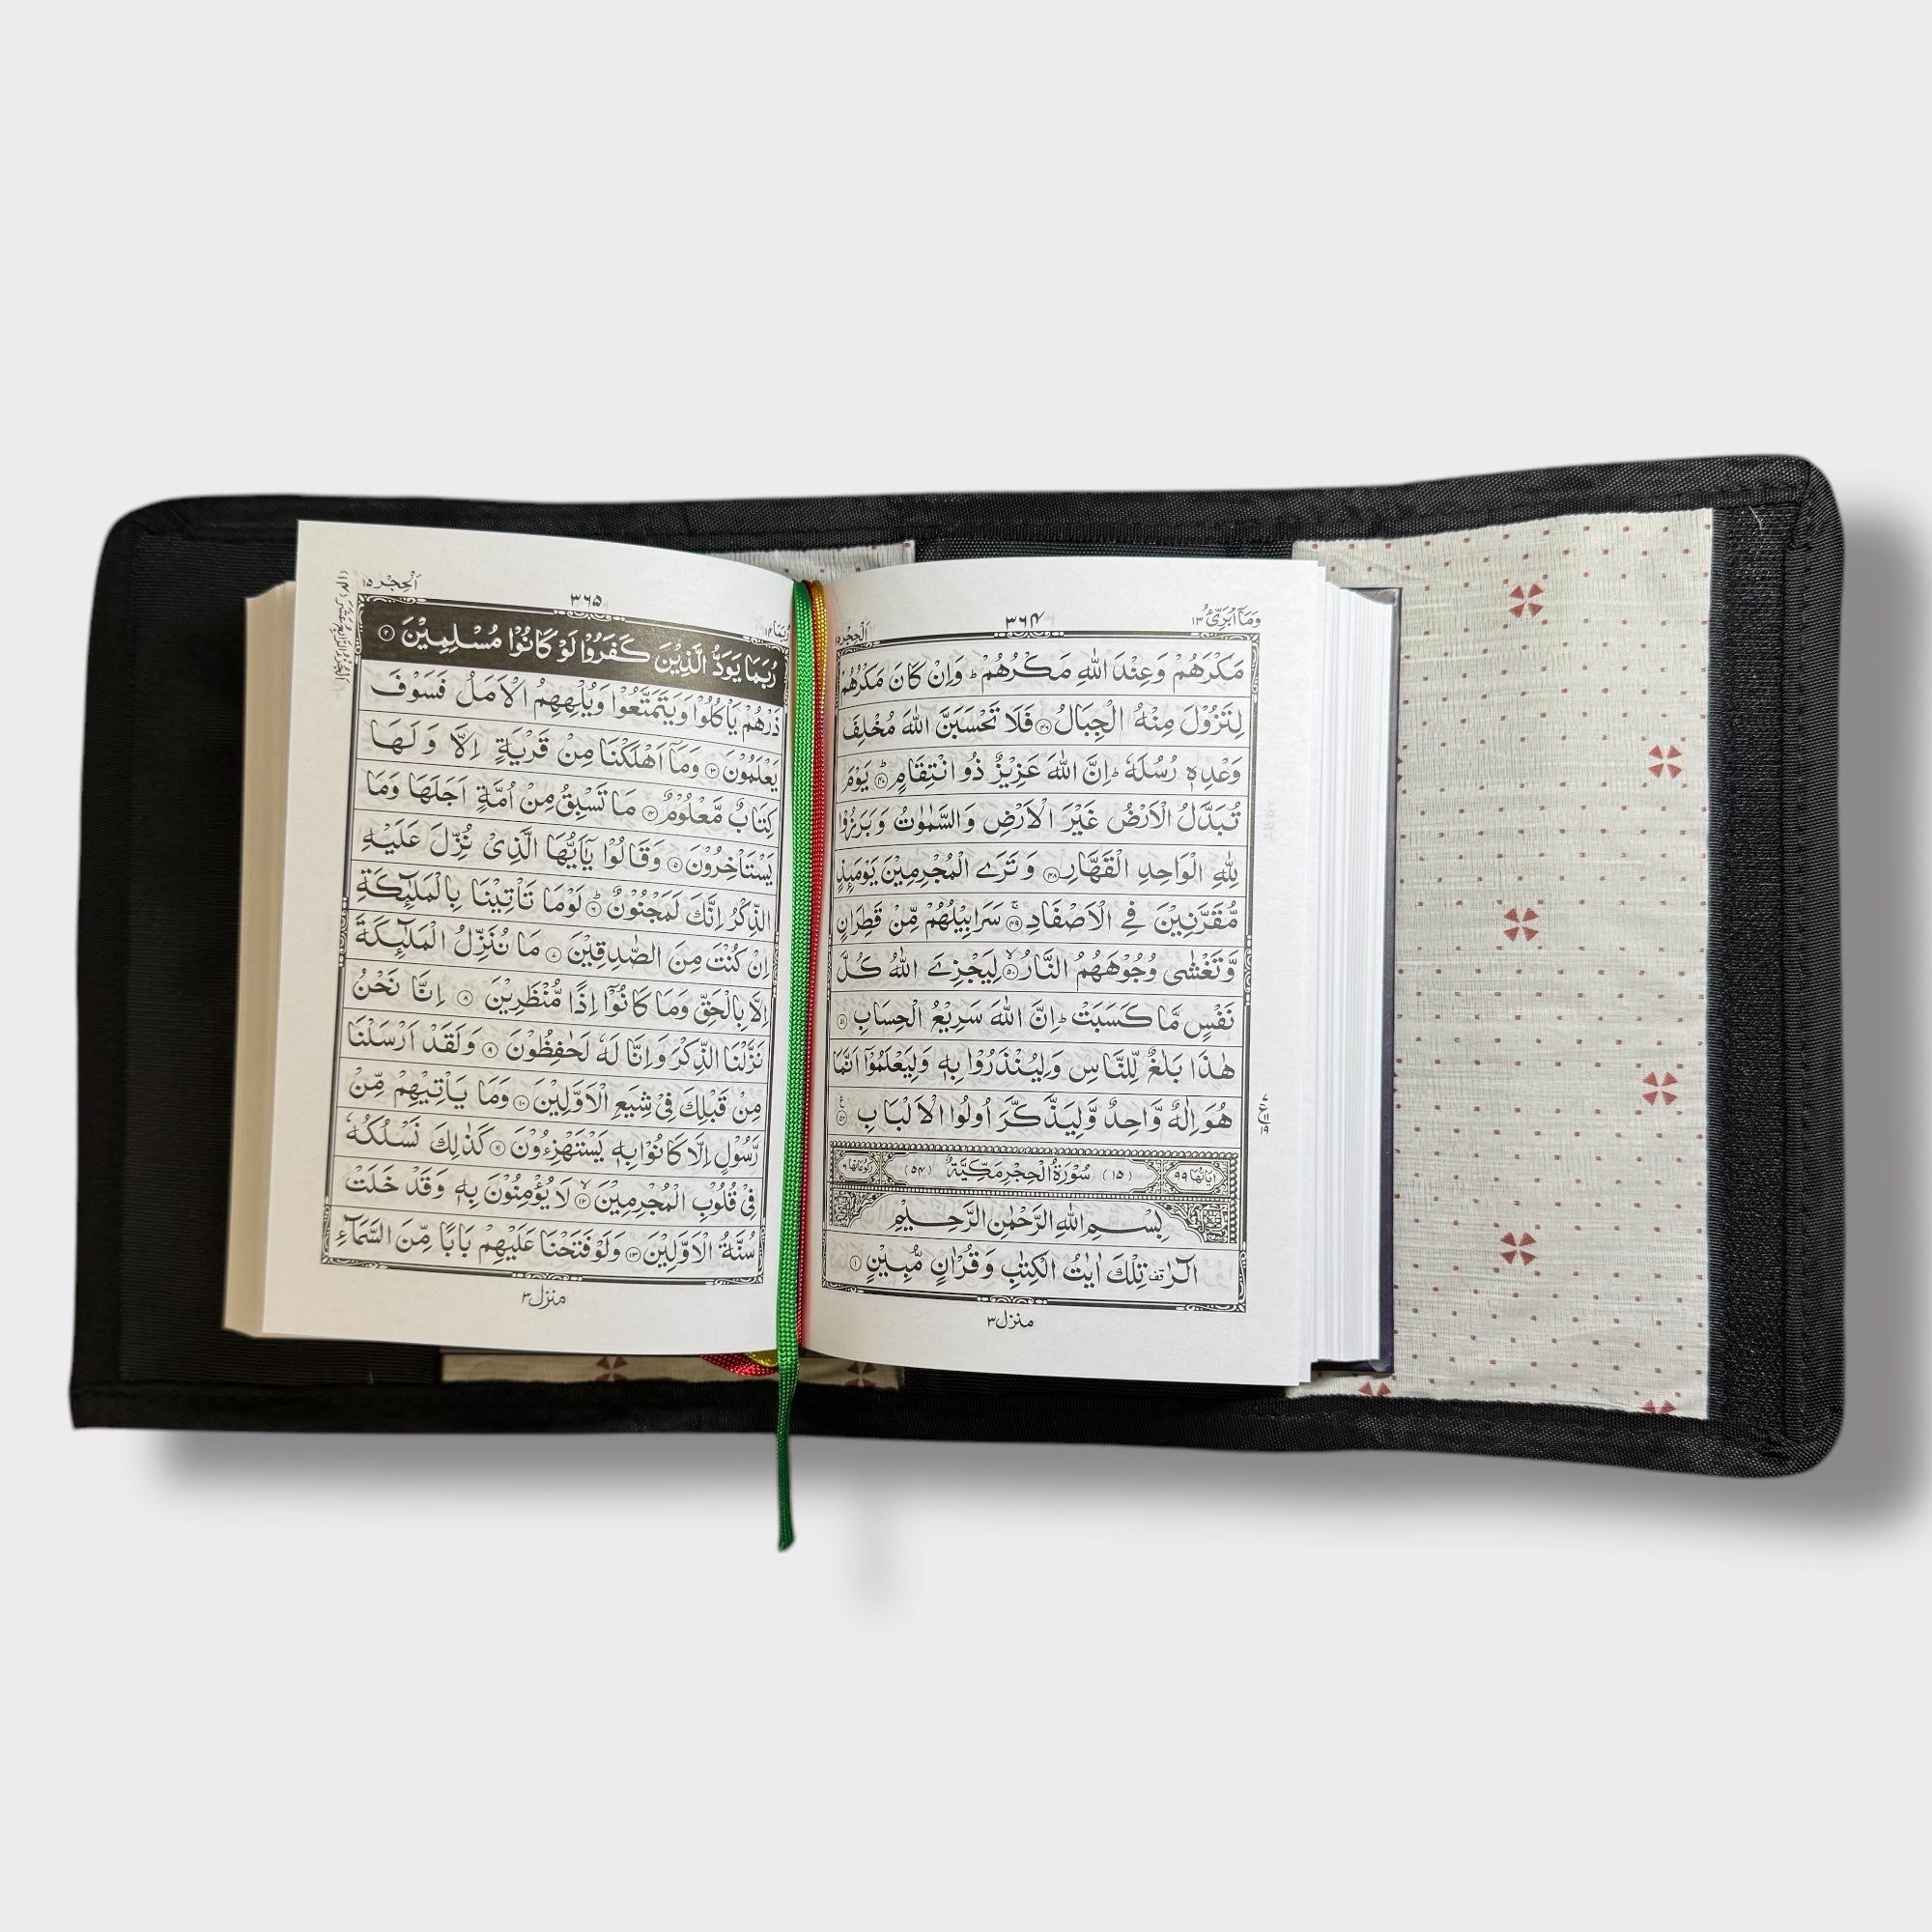 وَمَآ اُبَرِّئُ ١٣
٣٦٤
مَكْرَهُمْ وَعِنْدَ اللّٰهِ مَكْرُهُمْ ؕ وَاِنْ كَانَ مَكْرُهُمْ
لِتَزُوْلَ مِنْهُ الْجِبَالُ ﴿۴۶﴾ فَلَا تَحْسَبَنَّ اللّٰهَ مُخْلِفَ
وَعْدِهٖ رُسُلَهٗ ؕ اِنَّ اللّٰهَ عَزِيْزٌ ذُو انْتِقَامٍ ؕ ﴿۴۷﴾ يَوْمَ
تُبَدَّلُ الْاَرْضُ غَيْرَ الْاَرْضِ وَالسَّمٰوٰتُ وَبَرَزُوْا
لِلّٰهِ الْوَاحِدِ الْقَهَّارِ ﴿۴۸﴾ وَتَرَى الْمُجْرِمِيْنَ يَوْمَىِٕذٍ
مُّقَرَّنِيْنَ فِى الْاَصْفَادِ ۚ ﴿۴۹﴾ سَرَابِيْلُهُمْ مِّنْ قَطِرَانٍ
وَّتَغْشٰى وُجُوْهَهُمُ النَّارُ ۙ ﴿۵۰﴾ لِيَجْزِىَ اللّٰهُ كُلَّ
نَفْسٍ مَّا كَسَبَتْ ؕ اِنَّ اللّٰهَ سَرِيْعُ الْحِسَابِ ﴿۵۱﴾
هٰذَا بَلٰغٌ لِّلنَّاسِ وَلِيُنْذَرُوْا بِهٖ وَلِيَعْلَمُوْٓا اَنَّمَا
هُوَ اِلٰهٌ وَّاحِدٌ وَّلِيَذَّكَّرَ اُولُوا الْاَلْبَابِ ﴿۵۲﴾
اٰيَاتُهَا ٩٩ (١٥) سُوْرَةُ الْحِجْرِ مَكِّيَّةٌ (٥٤) رُكُوْعَاتُهَا ٦
بِسْمِ اللّٰهِ الرَّحْمٰنِ الرَّحِيْمِ
الٓرٰ قف تِلْكَ اٰيٰتُ الْكِتٰبِ وَقُرْاٰنٍ مُّبِيْنٍ ﴿۱﴾
منزل ٣
رُبَمَا ١٤
٣٦٥
اَلْحِجْر ١٥
رُبَمَا يَوَدُّ الَّذِيْنَ كَفَرُوْا لَوْ كَانُوْا مُسْلِمِيْنَ ﴿۲﴾
ذَرْهُمْ يَاْكُلُوْا وَيَتَمَتَّعُوْا وَيُلْهِهِمُ الْاَمَلُ فَسَوْفَ
يَعْلَمُوْنَ ﴿۳﴾ وَمَآ اَهْلَكْنَا مِنْ قَرْيَةٍ اِلَّا وَلَهَا
كِتَابٌ مَّعْلُوْمٌ ﴿۴﴾ مَا تَسْبِقُ مِنْ اُمَّةٍ اَجَلَهَا وَمَا
يَسْتَاْخِرُوْنَ ﴿۵﴾ وَقَالُوْا يٰۤاَيُّهَا الَّذِىْ نُزِّلَ عَلَيْهِ
الذِّكْرُ اِنَّكَ لَمَجْنُوْنٌ ؕ ﴿۶﴾ لَوْمَا تَاْتِيْنَا بِالْمَلٰٓىِٕكَةِ
اِنْ كُنْتَ مِنَ الصّٰدِقِيْنَ ﴿۷﴾ مَا نُنَزِّلُ الْمَلٰٓىِٕكَةَ
اِلَّا بِالْحَقِّ وَمَا كَانُوْٓا اِذًا مُّنْظَرِيْنَ ﴿۸﴾ اِنَّا نَحْنُ
نَزَّلْنَا الذِّكْرَ وَاِنَّا لَهٗ لَحٰفِظُوْنَ ﴿۹﴾ وَلَقَدْ اَرْسَلْنَا
مِنْ قَبْلِكَ فِىْ شِيَعِ الْاَوَّلِيْنَ ﴿۱۰﴾ وَمَا يَاْتِيْهِمْ مِّنْ
رَّسُوْلٍ اِلَّا كَانُوْا بِهٖ يَسْتَهْزِءُوْنَ ﴿۱۱﴾ كَذٰلِكَ نَسْلُكُهٗ
فِىْ قُلُوْبِ الْمُجْرِمِيْنَ ۙ ﴿۱۲﴾ لَا يُؤْمِنُوْنَ بِهٖ وَقَدْ خَلَتْ
سُنَّةُ الْاَوَّلِيْنَ ﴿۱۳﴾ وَلَوْ فَتَحْنَا عَلَيْهِمْ بَابًا مِّنَ السَّمَآءِ
منزل ٣